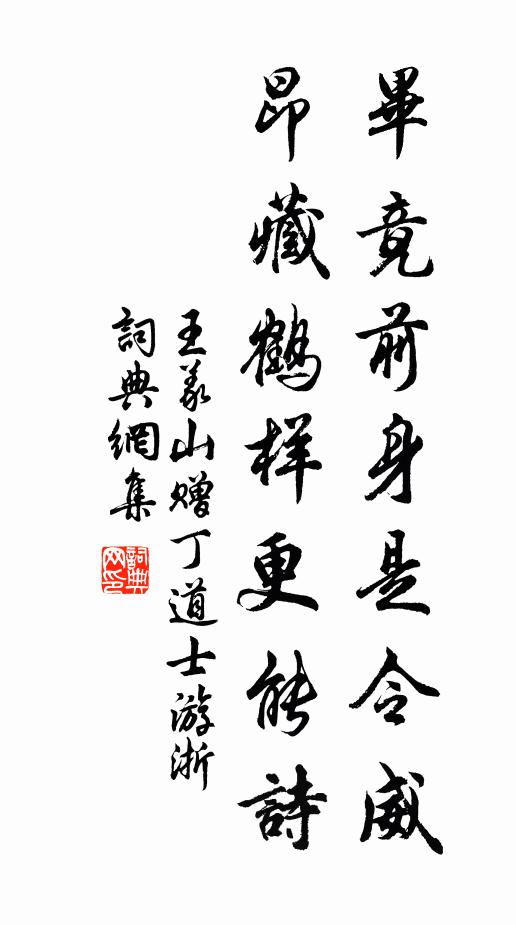 畢竟前身是令威
昂藏鶴样更能詩
王義山贈丁道士游浙
詞典網集
詞典网印